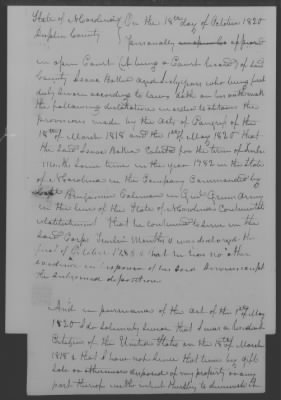 State of N Carolina } On the 18th day of October 1820
Duplin County } Personally appeared
in open Court (It being a Court of Record) of said
County Isaac Hall aged sixty years who being first
duly sworn according to law doth on his oath make
the following declaration in order to obtain the
provision made by the Acts of Congress of the
18th of March 1818 and the 1st of May 1820 that
the said Isaac Hall Enlisted for the term of twelve
Months some time in the year 1782 in the State
of N Carolina in the Company Commanded by
Benjamin Coleman in Genl Greens Army
in the line of the State of N Carolina Continental
establishment that he continued to serve in the
said Corps Twelve Months & was discharged the
first of October 1783 & that he has no other
evidence in of his said services except
the subjoined deposition
And in pursuance of the Act of the 1st of May
1820 I do solemnly swear that I was a resident
Citizen of the United States on the 18th of March
1818 & that I have not since that time by gift
sale or otherwise disposed of my property or any
part thereof with intent thereby to diminish it